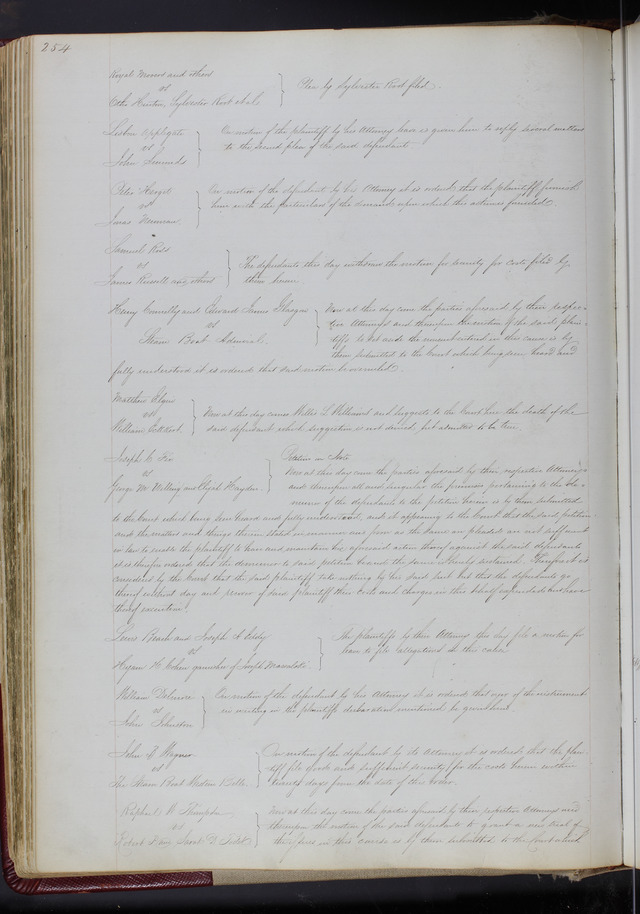 254
Royal Moores and others
vs
Otho Hinton, Sylvester Root et als } Plea by Sylvester Root filed.
vs
John Simonds
On motion of the plaintiff by his Attorney leave is given him to reply several matters
to the second plea of the said defendant
Peter
vs
James Newman
On motion of the defendant by his Attorney it is ordered that the plaintiff furnish
him with the particulars of the demands upon which this action is founded.
Samuel Ross
vs
James Russell and others
The defendants this day withdraw the motion for security for costs filed by
them herein
Henry Connelly and Edward James Glasgow
vs
Steam Boat Admiral.
Now at this day come the parties aforesaid by their respec-
tive Attorneys and thereupon the motion of the said plain-
tiffs to set aside the nonsuit entered in this cause is by
them submitted to the Court which being seen heard and
fully understood it is ordered that said motion be overruled.
Matthew
vs
William
Now at this day comes Willis L Williams and suggests to the Court here the death of the
said defendant which suggestion is not denied, but admitted to be true.
Joseph
vs
George M Willing and Hayden
Petition in Debt
Now at this day come the parties aforesaid by their respective Attorneys
and thereupon all and singular the premises pertaining to the de-
murrer of the defendants to the petition herein is by them submitted
to the Court which being seen heard and fully understood, and it appearing to the Court that the said petition
and the matters and things therein stated in manner and form as the same are pleaded are not sufficient
in law to enable the plaintiff to have and maintain his aforesaid action thereof against the said defendants
it is therefore ordered that the demurrer to said petition be and the same is hereby sustained. Therefore it is
considered by the Court that the said plaintiff take nothing by his said suit but that the defendants go
thereof without day and recover of said plaintiff their costs and charges in this behalf expended and have
thereof execution.
Lewis Beach and Joseph A Eddy
vs
Hyam H Cohen garnishee of Joseph
The plaintiffs by their Attorney this day file a motion for
leave to file allegations in this cause
William
vs
John Johnston
On motion of the defendant by his Attorney it is ordered that oyer of the instrument
in writing in the plaintiffs declaration mentioned be given him.
John C Wagner
vs
The Steam Boat Western Belle.
On motion of the defendant by its Attorney it is ordered that the plain-
tiff file good and sufficient security for the costs herein within
twenty days from the date of this order.
Raphael W Thompson
vs
Now at this day come the parties aforesaid by their respective Attorneys and
thereupon the motion of the said defendants to grant a new trial of
the issues in this cause is by them submitted to the Court which